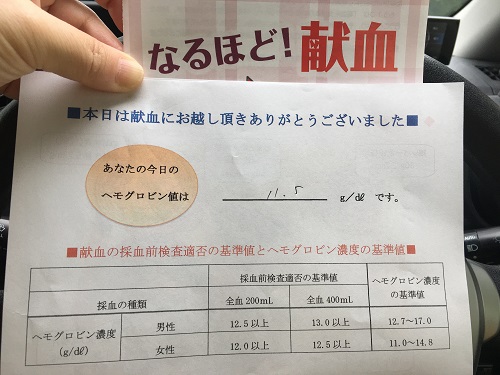 なるほど!献血
■本日は献血にお越し頂きありがとうございました■
あなたの今日の
ヘモグロビン値は 11.5 g/dℓ です。
■献血の採血前検査適否の基準値とヘモグロビン濃度の基準値■
採血の種類 採血前検査適否の基準値 ヘモグロビン濃度の基準値
全血 200mL 全血 400mL
ヘモグロビン濃度(g/dℓ) 男性 12.5 以上 13.0 以上 12.7~17.0
女性 12.0 以上 12.5 以上 11.0~14.8